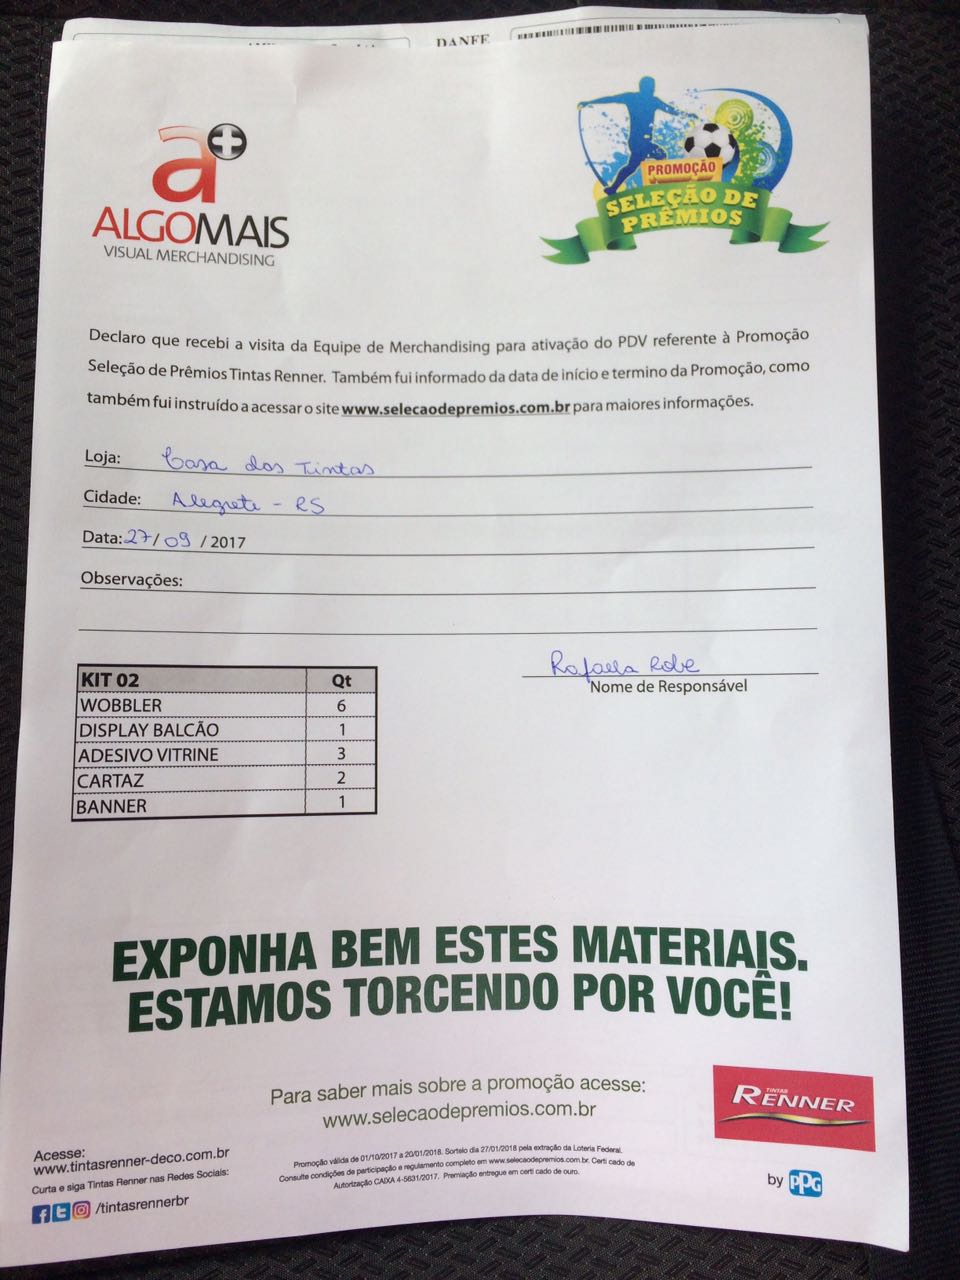 DANFE
a+
ALGOMAIS
VISUAL MERCHANDISING
PROMOÇÃO
SELEÇÃO DE
PRÊMIOS
Declaro que recebi a visita da Equipe de Merchandising para ativação do PDV referente à Promoção
Seleção de Prêmios Tintas Renner. Também fui informado da data de início e termino da Promoção, como
também fui instruído a acessar o site www.selecaodepremios.com.br para maiores informações.
Loja: Casa das Tintas
Cidade: Alegrete - RS
Data: 27/09 / 2017
Observações:
Rafaela Robe
Nome de Responsável
KIT 02 Qt
WOBBLER 6
DISPLAY BALCÃO 1
ADESIVO VITRINE 3
CARTAZ 2
BANNER 1
EXPONHA BEM ESTES MATERIAIS.
ESTAMOS TORCENDO POR VOCÊ!
Para saber mais sobre a promoção acesse:
www.selecaodepremios.com.br
TINTAS
RENNER
by PPG
Acesse:
www.tintasrenner-deco.com.br
Curta e siga Tintas Renner nas Redes Sociais:
/tintasrennerbr
Promoção válida de 01/10/2017 a 20/01/2018. Sorteio dia 27/01/2018 pela extração da Loteria Federal.
Consulte condições de participação e regulamento completo em www.selecaodepremios.com.br. Certi cado de
Autorização CAIXA 4-5631/2017. Premiação entregue em certi cado de ouro.